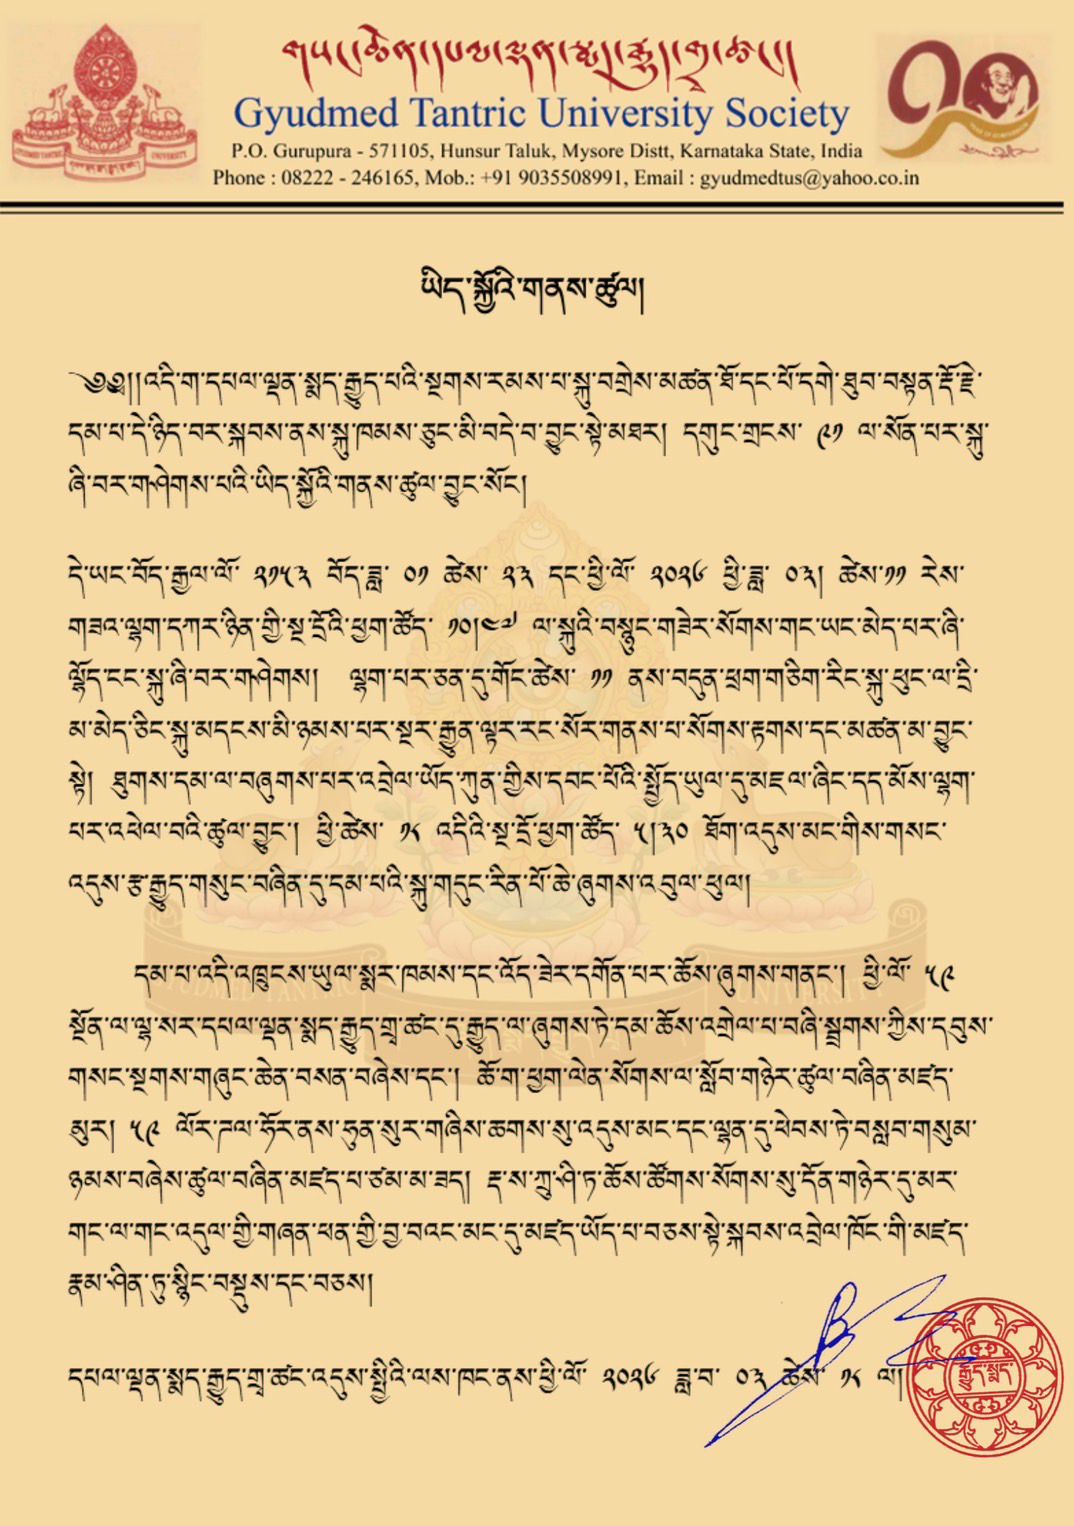 གསང་ཆེན་དཔལ་ལྡན་སྨད་རྒྱུད་གྲྭ་ཚང་།
Gyudmed Tantric University Society
P.O. Gurupura - 571105, Hunsur Taluk, Mysore Distt, Karnataka State, India
Phone : 08222 - 246165, Mob.: +91 9035508991, Email : gyudmedtus@yahoo.co.in
ཡིད་སྐྱོའི་གནས་ཚུལ།
༄༅།།འདི་ག་དཔལ་ལྡན་སྨད་རྒྱུད་པའི་སྔགས་རམས་པ་སྐུ་བགྲེས་མཚན་ཐོ་དང་པོ་དགེ་ཐུབ་བསྟན་རྡོ་རྗེ་
དམ་པ་དེ་ཉིད་བར་སྐབས་ནས་སྐུ་ཁམས་ཅུང་མི་བདེ་བ་བྱུང་སྟེ་མཐར། དགུང་གྲངས་ ༩༡ ལ་སོན་པར་སྐུ་
ཞི་བར་གཤེགས་པའི་ཡིད་སྐྱོའི་གནས་ཚུལ་བྱུང་སོང་།
དེ་ཡང་བོད་རྒྱལ་ལོ་ ༢༡༥༣ བོད་ཟླ་ ༠༡ ཚེས་ ༢༣ དང་ཕྱི་ལོ་ ༢༠༢༦ ཕྱི་ཟླ་ ༠༣། ཚེས་༡༡ རེས་
གཟའ་ལྷག་དཀར་ཉིན་གྱི་སྔ་དྲོའི་ཕྱག་ཚོད་ ༡༠།༤༧ ལ་སྐུའི་བསྙུང་གཟེར་སོགས་གང་ཡང་མེད་པར་ཞི་
ལྷོད་ངང་སྐུ་ཞི་བར་གཤེགས། ལྷག་པར་ཅན་དུ་གོང་ཚེས་ ༡༡ ནས་བདུན་ཕྲག་གཅིག་རིང་སྐུ་ཕུང་ལ་དྲི་
མ་མེད་ཅིང་སྐུ་མདངས་མི་ཉམས་པར་སྔར་རྒྱུན་ལྟར་རང་སོར་གནས་པ་སོགས་རྟགས་དང་མཚན་མ་བྱུང་
སྟེ། ཐུགས་དམ་ལ་བཞུགས་པར་འབྲེལ་ཡོད་ཀུན་གྱིས་དབང་པོའི་སྤྱོད་ཡུལ་དུ་མཇལ་ཞིང་དད་མོས་ལྷག་
པར་འཕེལ་བའི་ཚུལ་བྱུང་། ཕྱི་ཚེས་ ༡༨ འདིའི་སྔ་དྲོ་ཕྱག་ཚོད་ ༥།༣༠ ཐོག་འདུས་མང་གིས་གསང་
འདུས་རྩ་རྒྱུད་གསུང་བཞིན་དུ་དམ་པའི་སྐུ་གདུང་རིན་པོ་ཆེ་ཞུགས་འབུལ་ཕུལ།
དམ་པ་འདི་འཁྲུངས་ཡུལ་སྨར་ཁམས་དང་འོད་ཟེར་དགོན་པར་ཆོས་ཞུགས་གནང་། ཕྱི་ལོ་ ༥༩
སྔོན་ལ་ལྷ་སར་དཔལ་ལྡན་སྨད་རྒྱུད་གྲྭ་ཚང་དུ་རྒྱུད་ལ་ཞུགས་ཏེ་དམ་ཆོས་འགྲེལ་པ་བཞི་སྦྲགས་ཀྱིས་དབུས་
གསང་སྔགས་གཞུང་ཆེན་བསན་བཞེས་དང་། ཆོ་ག་ཕྱག་ལེན་སོགས་ལ་སློབ་གཉེར་ཚུལ་བཞིན་མཛད་
མུར། ༥༩ ལོར་ཌལ་ཧོར་ནས་ཧུན་སུར་གཞིས་ཆགས་སུ་འདུས་མང་དང་ལྷན་དུ་ཕེབས་ཏེ་བསླབ་གསུམ་
ཉམས་བཞེས་ཚུལ་བཞིན་མཛད་པ་ཙམ་མ་ཟད། རྡ་ས་ཀྲུ་ཤི་ཏ་ཆོས་ཚོགས་སོགས་སུ་དོན་གཉེར་དུ་མར་
གང་ལ་གང་འདུལ་གྱི་གཞན་ཕན་གྱི་བྱ་བའང་མང་དུ་མཛད་ཡོད་པ་བཅས་སྟེ་སྐབས་འབྲེལ་ཁོང་གི་མཛད་
རྣམ་ཤིན་ཏུ་སྙིང་བསྡུས་དང་བཅས།
དཔལ་ལྡན་སྨད་རྒྱུད་གྲྭ་ཚང་འདུས་སྤྱིའི་ལས་ཁང་ནས་ཕྱི་ལོ་ ༢༠༢༦ ཟླ་བ་ ༠༣ ཚེས་ ༡༨ ལ།
རྒྱུད་སྨད་